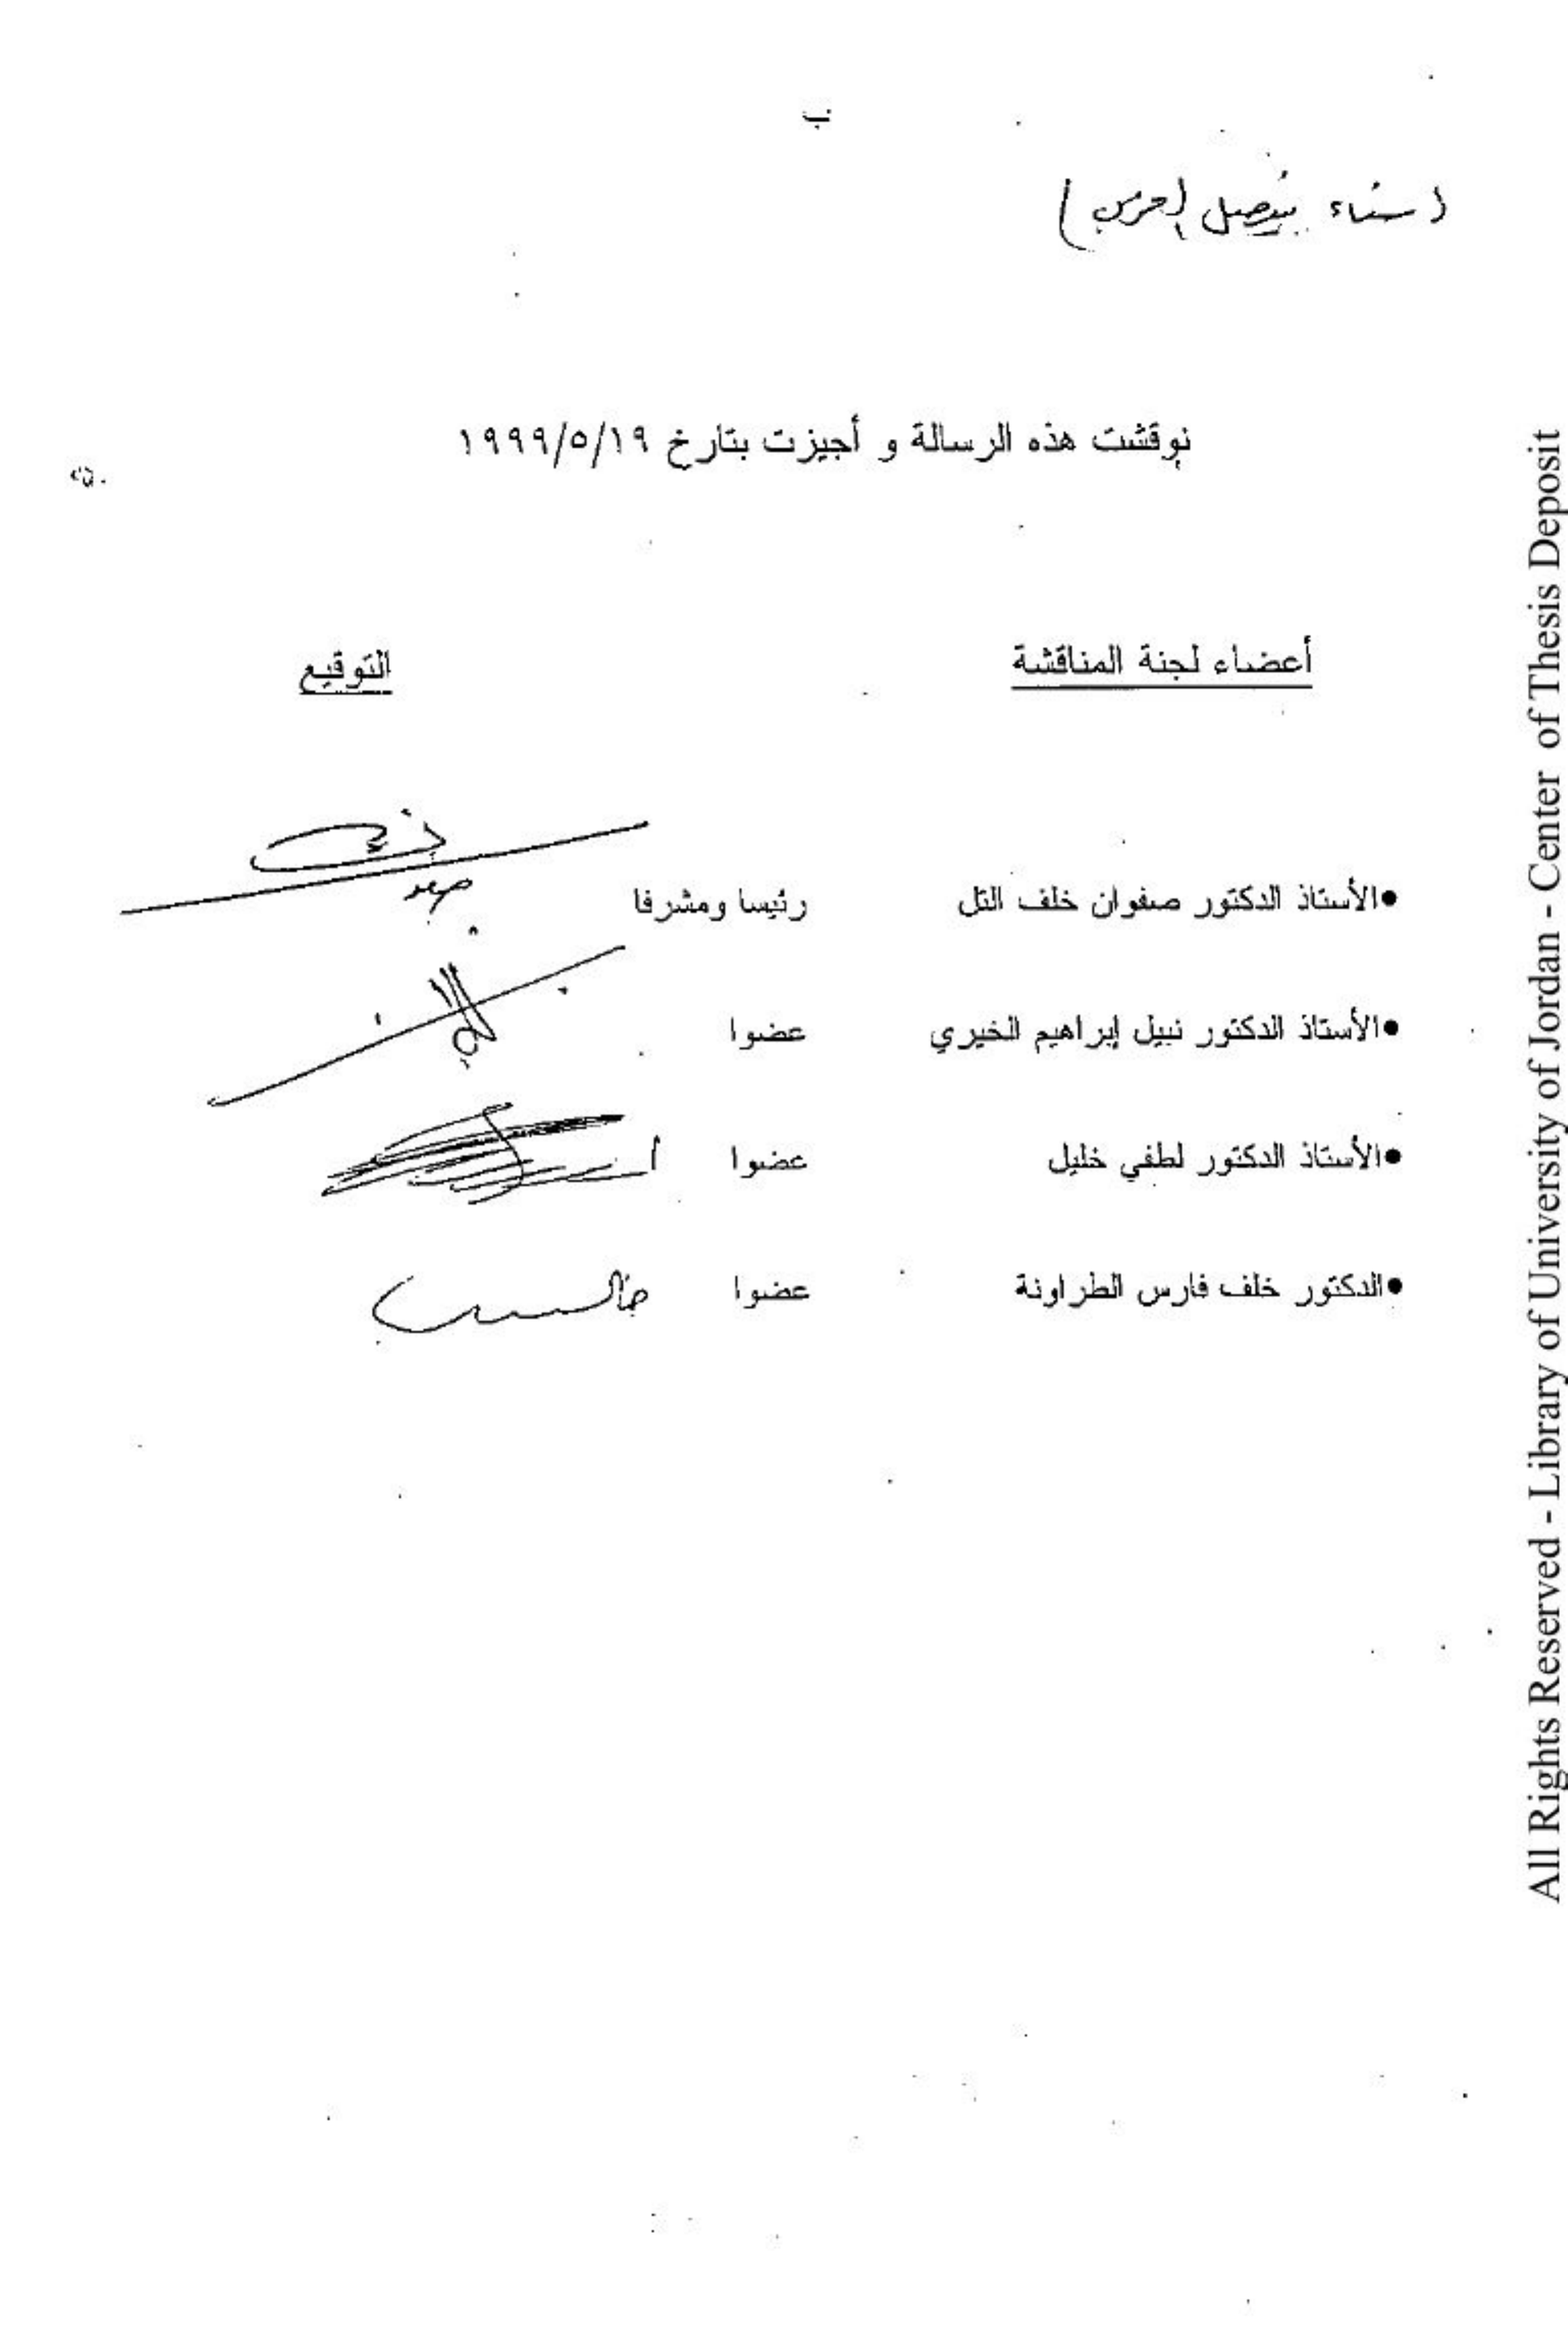 ب
(سناء
نوقشت هذه الرسالة و أجيزت بتارخ ١٩٩٩/٥/١٩
أعضاء لجنة المناقشة التوقيع
•الأستاذ الدكتور صفوان خلف التل رئيسا ومشرفا
•الأستاذ الدكتور نبيل إبراهيم الخيري عضوا
•الأستاذ الدكتور لطفي خليل عضوا
•الدكتور خلف فارس الطراونة عضوا
All Rights Reserved - Library of University of Jordan - Center of Thesis Deposit